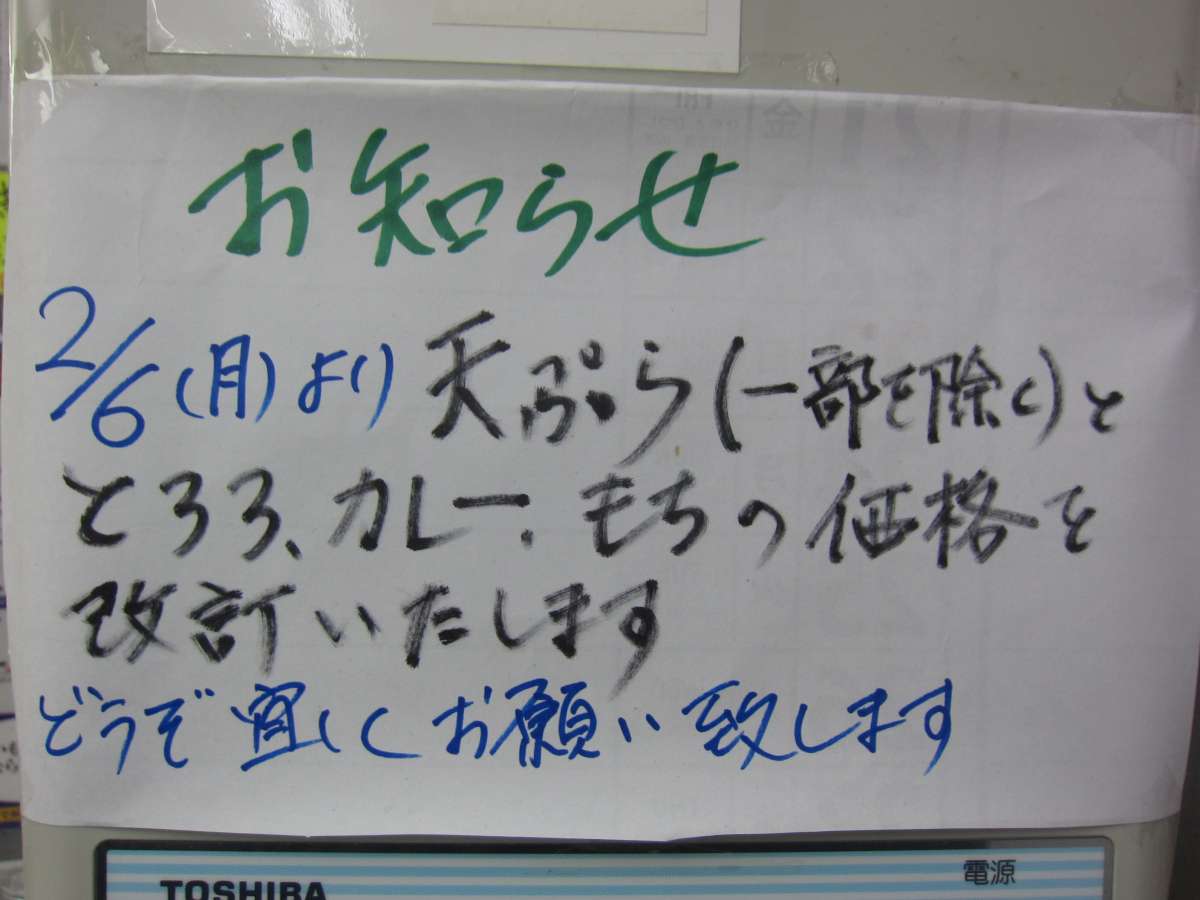 お知らせ
2/6(月)より 天ぷら(一部を除く)と
とろろ、カレー、もちの価格を
改訂いたします
どうぞ宜しくお願い致します
TOSHIBA
電源